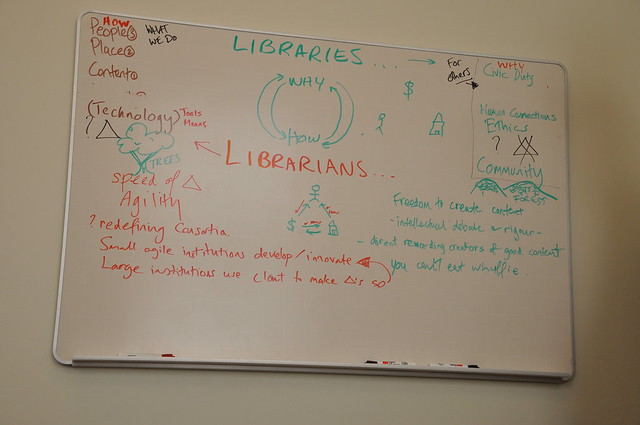 HOW
People③
WHAT
WE DO
Place②
Content①
LIBRARIES ...
For
others
WHY
Civic Duty
WHY
HOW
$
(Technology)
Tools
Means
? △
TREES
Human Connections
Ethics
?
Community
LIBRARIANS ...
Speed of △
Agility
? redefining Consortia
Small agile institutions develop/innovate
Large institutions use clout to make △'s so
$
Freedom to create content
- intellectual debate & rigour -
- direct rewarding creators of good content
you can't eat whuffie.